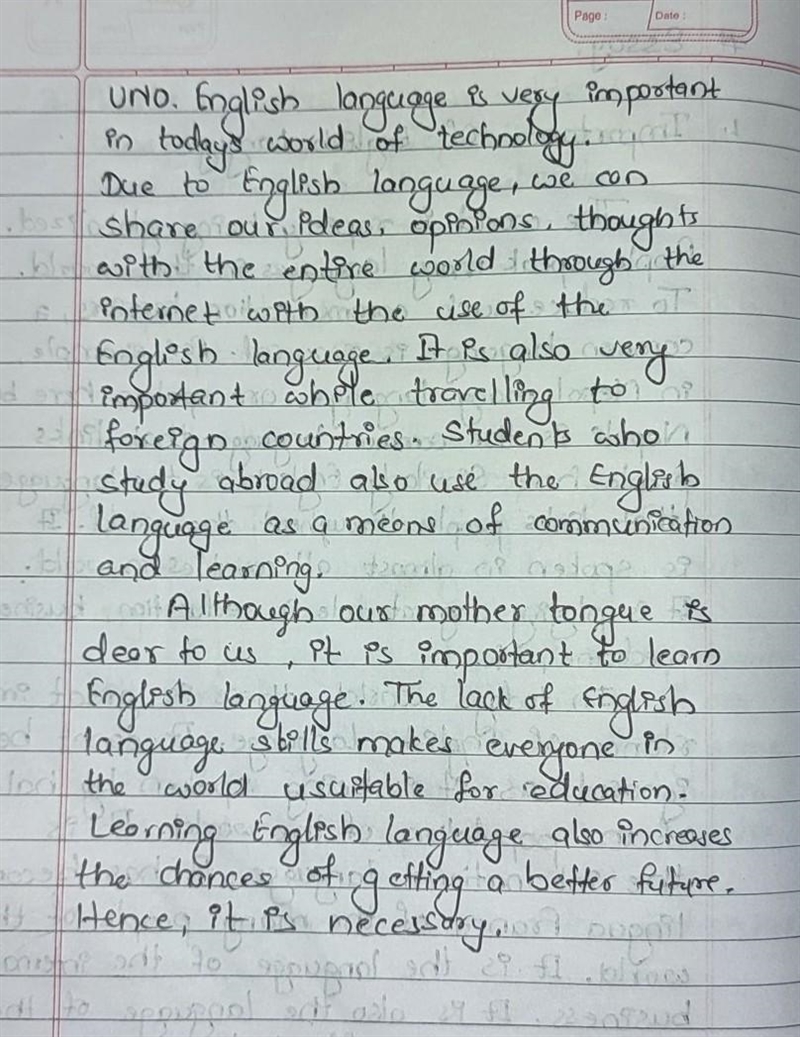 Page :
Date :
UNO. English language is very important
in todays world of technology.
Due to English language, we can
share our ideas, opinions, thoughts
with the entire world through the
internet with the use of the
English language. It is also very
important while travelling to
foreign countries. Students who
study abroad also use the English
language as a means of communication
and learning.
Although our mother tongue is
dear to us, it is important to learn
English language. The lack of English
language skills makes everyone in
the world usuitable for education.
Learning English language also increases
the chances of getting a better future.
Hence, it is necessary.